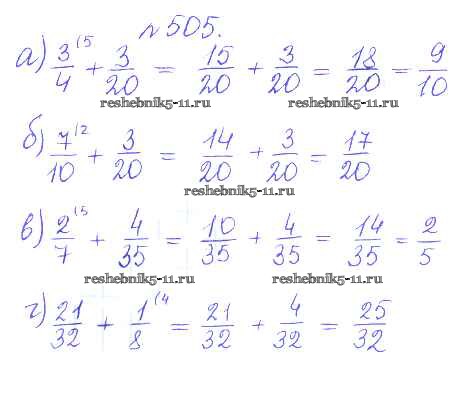 №505.
а) 3/4 (5 + 3/20 = 15/20 + 3/20 = 18/20 = 9/10
reshebnik5-11.ru reshebnik5-11.ru
б) 7/10 (2 + 3/20 = 14/20 + 3/20 = 17/20
reshebnik5-11.ru
в) 2/7 (5 + 4/35 = 10/35 + 4/35 = 14/35 = 2/5
reshebnik5-11.ru reshebnik5-11.ru
г) 21/32 + 1/8 (4 = 21/32 + 4/32 = 25/32